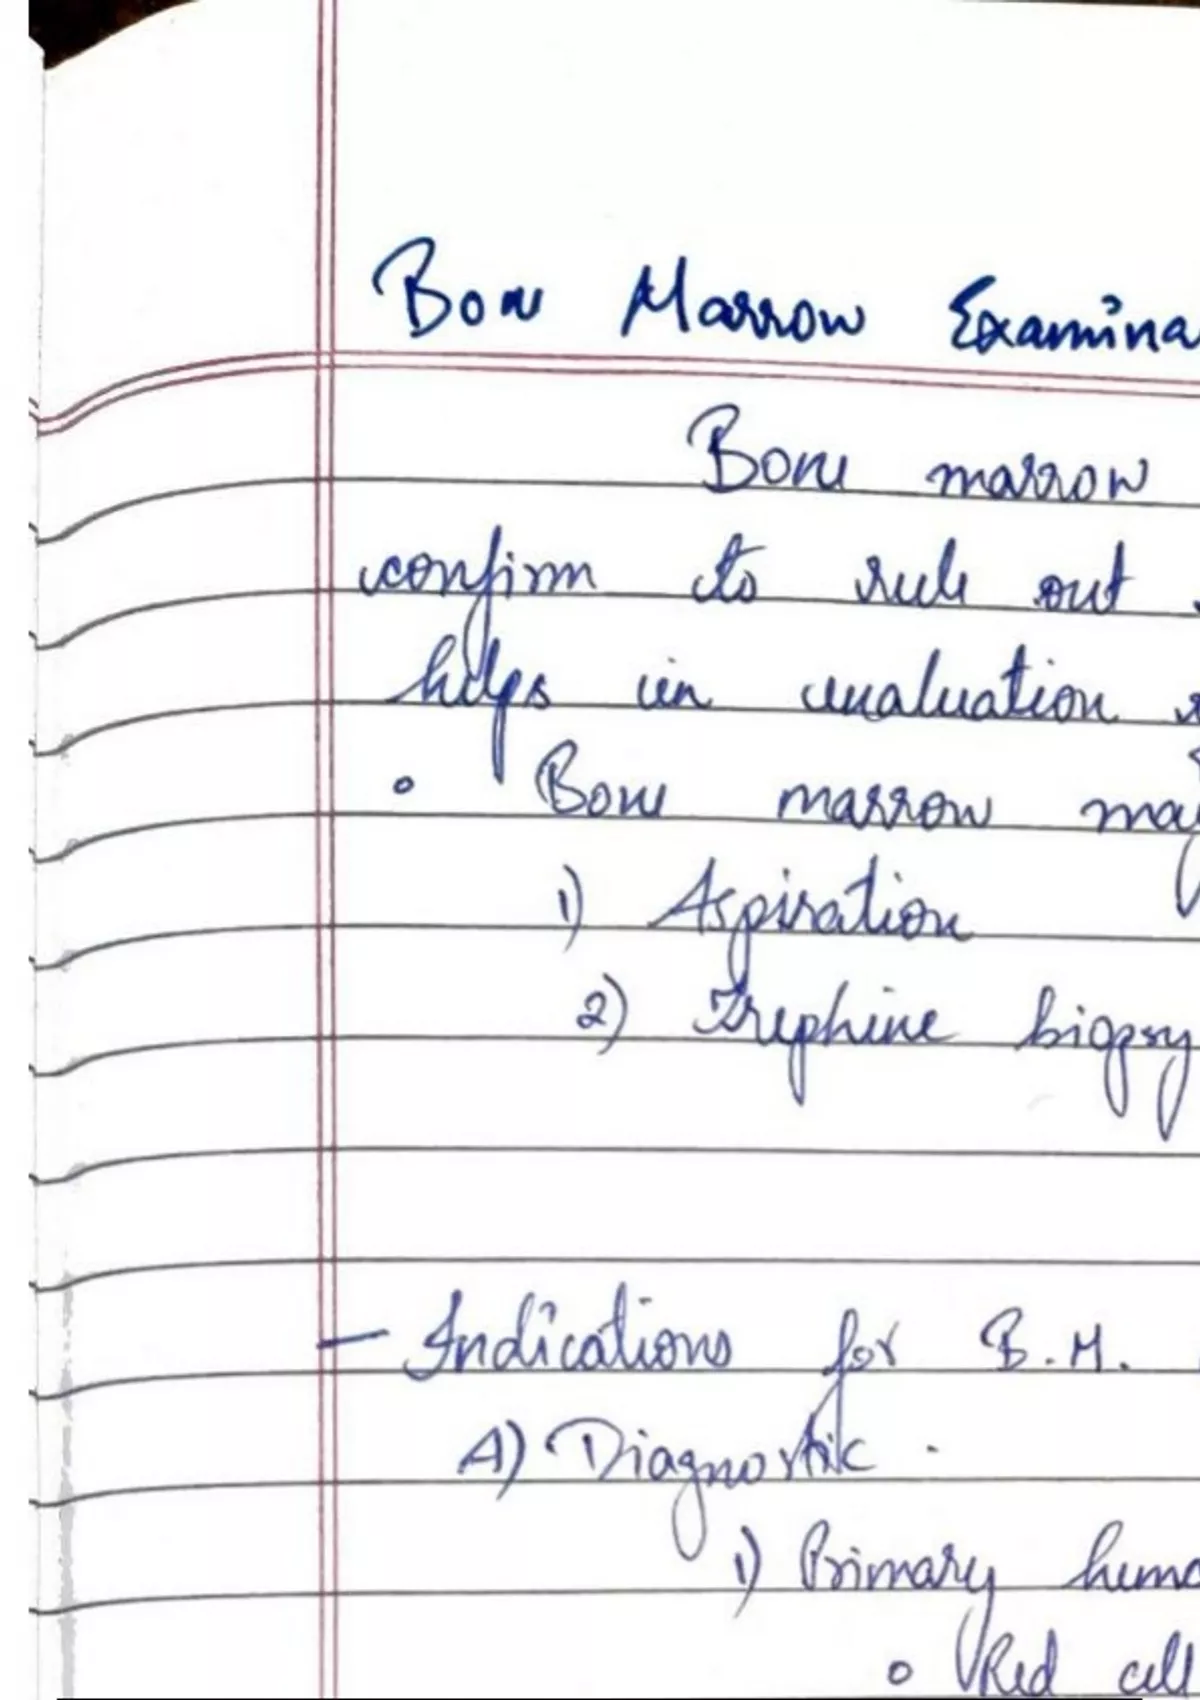 Bone Marrow Examina
Bone marrow
confirm to rule out
helps in evaluation
• Bone marrow may
1) Aspiration
2) Trephine biopsy
— Indications for B.M.
A) Diagnostic .
1) Primary hema
• Red cell